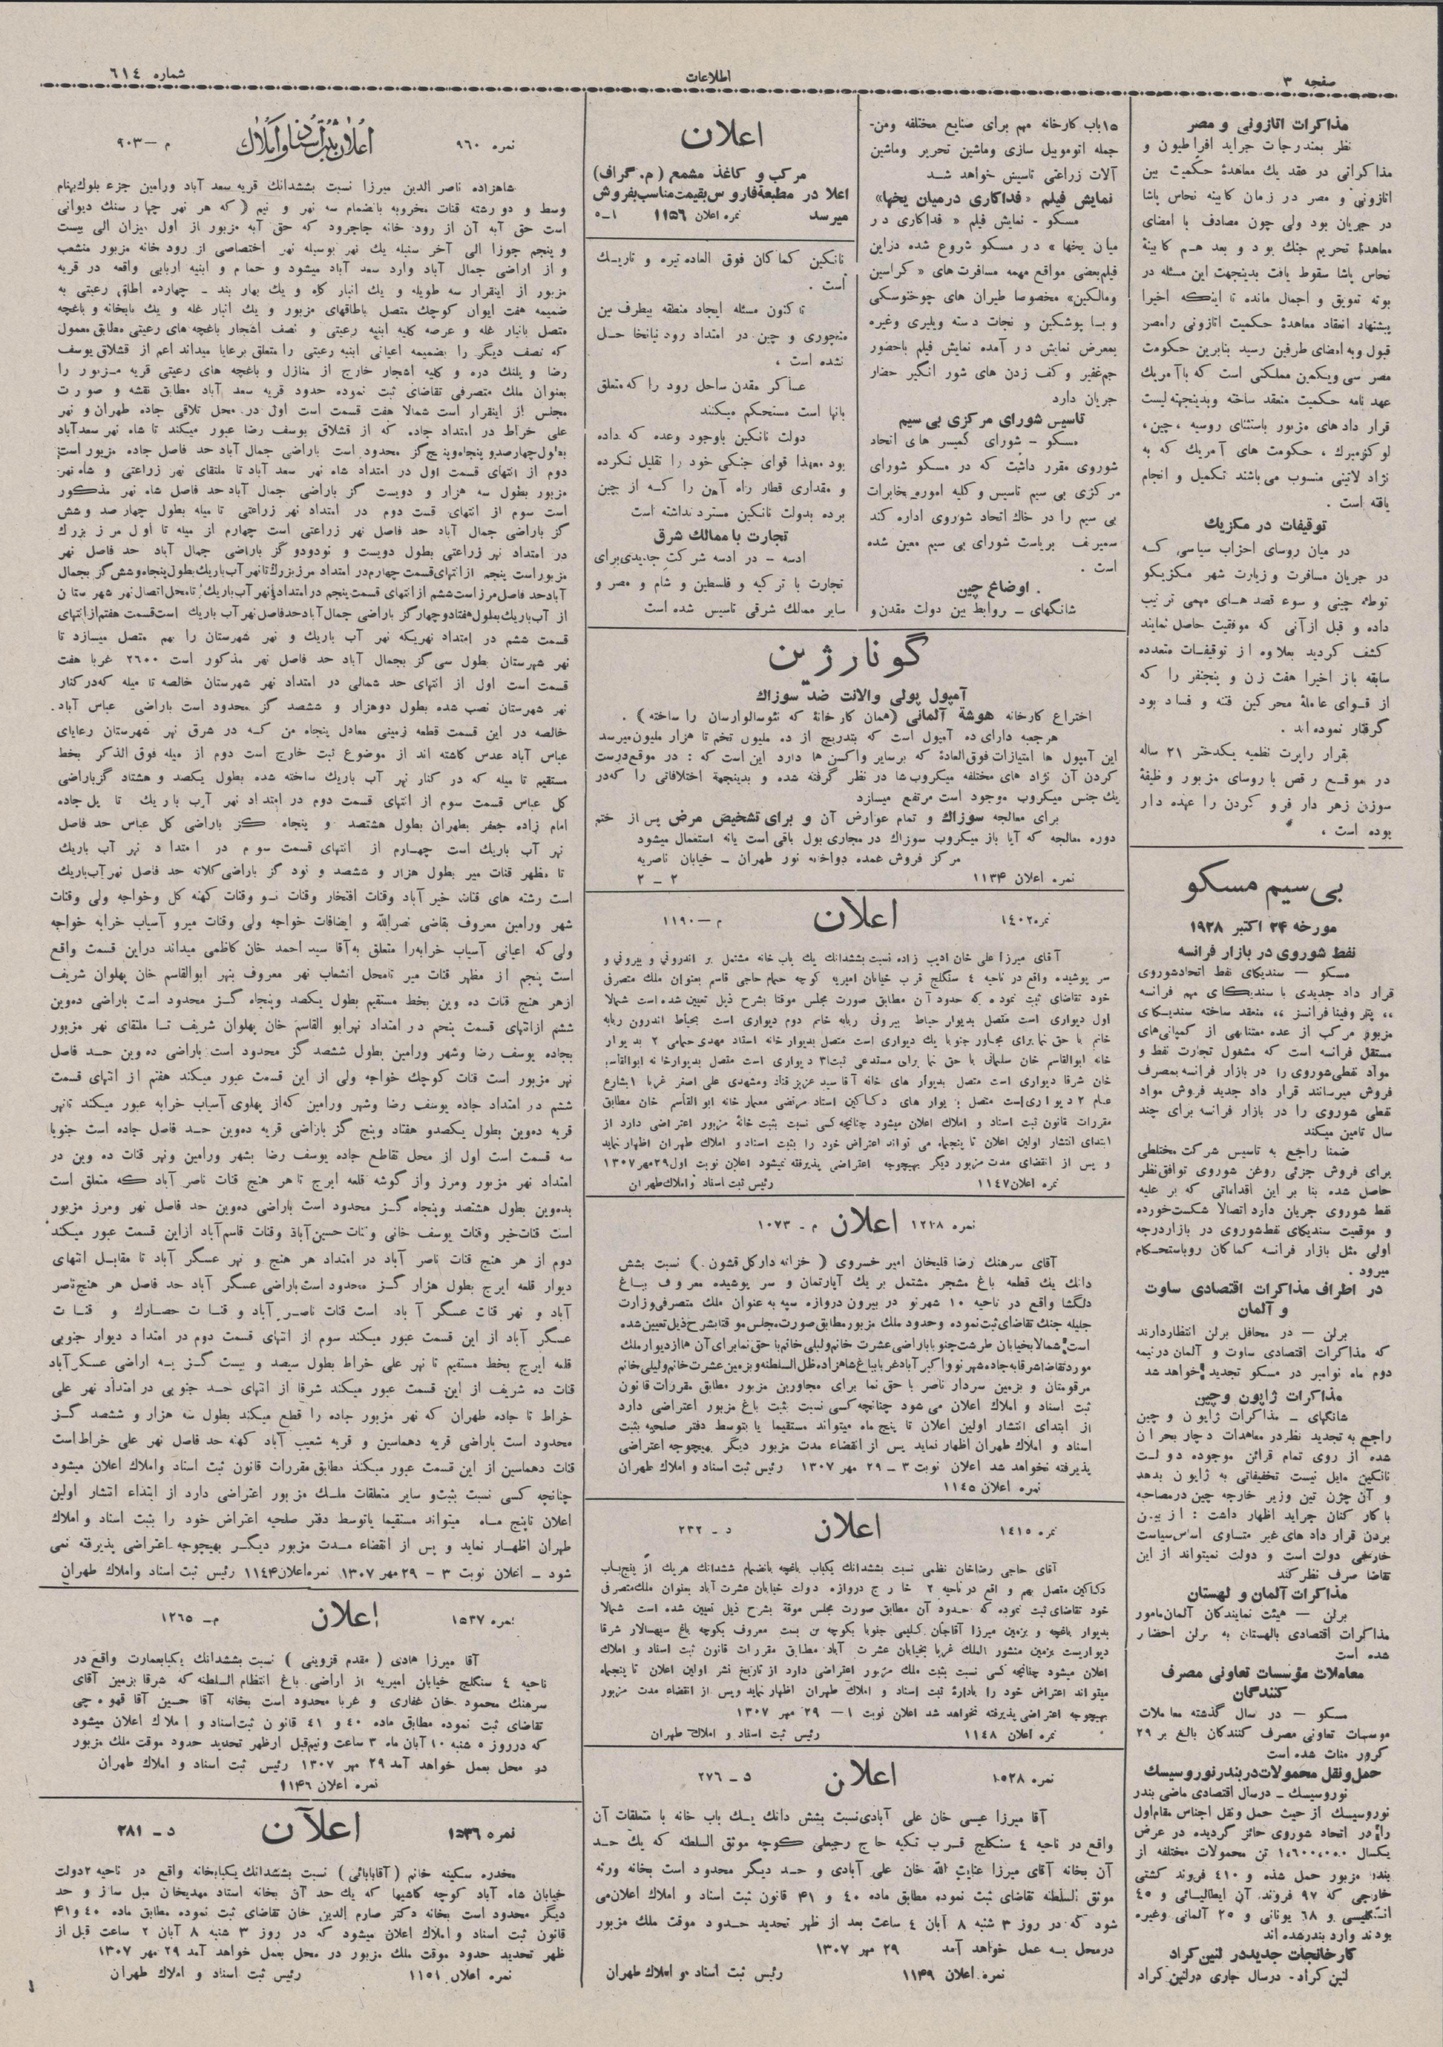 صفحه ۳
اطلاعات
شماره ٦١٤
مذاکرات اتازونی و مصر
نظر بمندرجات جراید افراطیون و
مذاکراتی در عقد یك معاهدهٔ حکمیت بین
اتازونی و مصر در زمان کابینه نحاس پاشا
در جریان بود ولی چون مصادف با امضای
معاهدهٔ تحریم جنك بود و بعد هم کابینهٔ
نحاس پاشا سقوط یافت بدینجهت این مسئله در
بوته تعویق و اجمال مانده تا اینکه اخیرا
پیشنهاد انعقاد معاهدهٔ حکمیت اتازونی رامصر
قبول وبه امضای طرفین رسید بنابرین حکومت
مصر سی ویکمین مملکتی است که باآمریك
عهد نامه حکمیت منعقد ساخته وبدینجهته لیست
قرار داد های مزبور باستثنای روسیه ، چین،
لوکزمبرك ، حکومت های آمریك که به
نژاد لاتینی منسوب می باشند تکمیل و انجام
یافته است .
توقیفات در مکزیك
در میان روسای احزاب سیاسی که
در جریان مسافرت و زیارت شهر مکزیکو
توطئه چینی و سوء قصد های مهمی ترتیب
داده و قبل از آنی که موفقیت حاصل نمایند
کشف کردید بعلاوه از توقیفات متعدده
سابقه باز اخیرا هفت زن و پنجنفر را که
از قوای عاملهٔ محرکین فتنه و فساد بود
گرفتار نموده اند .
بقرار راپرت نظمیه یکدختر ۲۱ ساله
در موقع رقص با روسای مزبور وظیفهٔ
سوزن زهر دار فرو کردن را عهده دار
بوده است .
بی سیم مسکو
مورخه ۲۴ اکتبر ۱۹۲۸
نفط شوروی در بازار فرانسه
مسکو — سندیکای نفط اتحادشوروی
قرار داد جدیدی با سندیکای مهم فرانسه
،، پتر وفینا فرانسز ،، منعقد ساخته سندیکای
مزبور مرکب از عده معتنابهی از کمپانی‌های
مستقل فرانسه است که مشغول تجارت نفط و
مواد نفطی شوروی را در بازار فرانسه بمصرف
فروش میرسانند قرار داد جدید فروش مواد
نفطی شوروی را در بازار فرانسه برای چند
سال تامین میکند
ضمنا راجع به تاسیس شرکت مختلطی
برای فروش جزئی روغن شوروی توافق نظر
حاصل شده بنا بر این اقداماتی که بر علیه
نفط شوروی جریان دارد اتصالا شکست خورده
و موقعیت سندیکای نفط شوروی در بازار درجه
اولی مثل بازار فرانسه کماکان روباستحکام
میرود .
در اطراف مذاکرات اقتصادی ساوت
و آلمان
برلن — در محافل برلن انتظاردارند
که مذاکرات اقتصادی ساوت و آلمان درنیمه
دوم ماه نوامبر در مسکو تجدید خواهد شد
مذاکرات ژاپون وچین
شانگهای — مذاکرات ژاپون و چین
راجع به تجدید نظر در معاهدات دچار بحران
شده از روی تمام قرائن موجوده دولت
نانکین مایل نیست تخفیفاتی به ژاپون بدهد
و آن چژن تین وزیر خارجه چین درمصاحبه
با کار کنان جراید اظهار داشت : از بین
بردن قرار داد های غیر متساوی اساس سیاست
خارجی دولت است و دولت نمیتواند از این
تقاضا صرف نظر کند
مذاکرات آلمان و لهستان
برلن — هیئت نمایندکان آلمان مامور
مذاکرات اقتصادی بالهستان به برلن احضار
شده است
معاملات مؤسسات تعاونی مصرف
کنندگان
مسکو — در سال گذشته معاملات
موسسات تعاونی مصرف کنندکان بالغ بر ۲۹
کرور منات شده است
حمل و نقل محمولات در بندر نوروسیسك
نوروسیسك — درسال اقتصادی ماضی بندر
نوروسیسك از حیث حمل ونقل اجناس مقام اول
را در اتحاد شوروی حائز گردیده در عرض
یکسال تن محمولات مختلفه از
بندر مزبور حمل شده و ٤١٠ فروند کشتی
خارجی که ۹۷ فروند آن ایطالیائی و ٤٥
انگلیسی و ٦٨ یونانی و ۲۵ آلمانی وغیره
بودند وارد بندرشده اند
کارخانجات جدید در لنین گراد
لنین کراد- درسال جاری درلنین کراد
۱۵ باب کارخانه مهم برای صنایع مختلفه ومن-
جمله اتوموبیل سازی وماشین تحریر وماشین
آلات زراعتی تاسیس خواهد شد
نمایش فیلم «فداکاری درمیان یخها»
مسکو - نمایش فیلم « فداکاری در
میان یخها » در مسکو شروع شده دراین
فیلم بعضی مواقع مهمه مسافرت های « کراسین
ومالکین» مخصوصا طیران های چوخنوسکی
و با پوشکین و نجات دسته ویلیری وغیره
بمعرض نمایش در آمده نمایش فیلم باحضور
جم غفیر و کف زدن های شور انگیز حضار
جریان دارد
تاسیس شورای مرکزی بی سیم
مسکو - شورای کمیسر های اتحاد
شوروی مقرر داشت که در مسکو شورای
مرکزی بی سیم تاسیس و کلیه امور مخابرات
بی سیم را در خاك اتحاد شوروی اداره کند
سمیرنف بریاست شورای بی سیم معین شده
است .
اوضاع چین
شانگهای — روابط بین دولت مقدن و
اعلان
مرکب و کاغذ مشمع (م . گراف)
اعلا در مطبعهٔ فاروس بقیمت مناسب بفروش
میرسد نمره اعلان ١١٥٦ ۱-۵
نانکین کماکان فوق العاده تیره و تاریك
است .
تاکنون مسئله ایجاد منطقه بیطرف بین
منچوری و چین در امتداد رود نیانخا حل
نشده است .
عساکر مقدن ساحل رود را که متعلق
بانها است مستحکم میکنند
دولت نانکین باوجود وعده که داده
بود معهذا قوای جنکی خود را تقلیل نکرده
و مقداری قطار راه آهن را که از چین
برده بدولت نانکین مسترد نداشته است
تجارت با ممالك شرق
ادسه — در ادسه شرکت جدیدی برای
تجارت با ترکیه و فلسطین و شام و مصر و
سایر ممالك شرقی تاسیس شده است
گونارژین
آمپول پولی والانت ضد سوزاك
اختراع کارخانه هوشهٔ آلمانی (همان کارخانهٔ که نئوسالوارسان را ساخته) .
هرجعبه دارای ده آمپول است که بتدریج از ده ملیون تخم تا هزار ملیون میرسد
این آمپول ها امتیازات فوق العادهٔ که برسایر واکسن ها دارد این است که : در موقع درست
کردن آن نژاد های مختلفه میکروب ها در نظر گرفته شده و بدینجهة اختلافاتی را که در
یك جنس میکروب موجود است مرتفع میسازد
برای معالجه سوزاك و تمام عوارض آن و برای تشخیص مرض پس از ختم
دوره معالجه که آیا باز میکروب سوزاك در مجاری بول باقی است یانه استعمال میشود
مرکز فروش عمده دواخانه نور طهران — خیابان ناصریه
نمره اعلان ۱۱۳۴ ۲ — ۲
نمره ١٤٠٢ اعلان م — ۱۱۹۰
آقای میرزا علی خان ادیب زاده نسبت بششدانك یك باب خانه مشتمل بر اندرونی و بیرونی و
سر پوشیده واقع در ناحیه ٤ سنگلج قرب خیابان امیریه کوچه حمام حاجی قاسم بعنوان ملك متصرفی
خود تقاضای ثبت نموده که حدود آن مطابق صورت مجلس موقتا بشرح ذیل تعیین شده است شمالا
اول دیواری است متصل بدیوار حیاط بیرونی ربابه خانم دوم دیواری است بحیاط اندرون ربابه
خانم با حق نما برای مجاور جنوبا یك دیواری است متصل بدیوار خانه استاد مهدی حمامی ۲ بدیوار
خانه ابوالقاسم خان سلمانی با حق نما برای مستدعی ثبت ۳ دیواری است متصل بدیوار خانه ابوالقاسم
خان شرقا دیواری است متصل بدیوار های خانه آقا سید عزیز قناد ومشهدی علی اصغر غربا ۱ بشارع
عام ۲ دیواریست متصل بدیوار های دکاکین استاد مرتضی معمار خانه ابوالقاسم خان مطابق
مقررات قانون ثبت اسناد و املاك اعلان میشود چنانچه کسی نسبت بثبت خانهٔ مزبور اعتراضی دارد از
ابتدای انتشار اولین اعلان تا پنجماه می تواند اعتراض خود را بثبت اسناد و املاك طهران اظهار نماید
و پس از انقضای مدت مزبور دیگر بهیچوجه اعتراضی پذیرفته نمیشود اعلان نوبت اول ۲۹ مهر ۱۳۰۷
نمره اعلان ۱۱۴۷ رئیس ثبت اسناد و املاك طهران
نمره ۱۲۲۸ اعلان م - ۱۰۷۳
آقای سرهنك رضا قلیخان امیر خسروی ( خزانه دار کل قشون . ) نسبت بشش
دانك یك قطعه باغ مشجر مشتمل بر یك آپارتمان و سر پوشیده معروف بباغ
دلگشا واقع در ناحیه ۱۰ شهرنو در بیرون دروازه سپه به عنوان ملك متصرفی وزارت
جلیله جنك تقاضای ثبت نموده وحدود ملك مزبور مطابق صورت مجلس موقتا بشرح ذیل تعیین شده
است شمالا بخیابان طرشت جنوبا باراضی عشرت خانم ولیلی خانم باحق نما برای آن ها از دیوار ملك
مورد تقاضا شرقا به جاده شهر نو و اکبر آباد غربا بباغ شاهزاده ظل السلطنه و بزمین عشرت خانم ولیلی خانم
مرقومتان و بزمین سردار ناصر با حق نما برای مجاورین مزبور مطابق مقررات قانون
ثبت اسناد و املاك اعلان می شود چنانچه کسی نسبت بثبت باغ مزبور اعتراضی دارد
از ابتدای انتشار اولین اعلان تا پنج ماه میتواند مستقیما یا بتوسط دفتر صلحیه بثبت
اسناد و املاك طهران اظهار نماید پس از انقضاء مدت مزبور دیگر بهیچوجه اعتراضی
پذیرفته نخواهد شد اعلان نوبت ۳ — ۲۹ مهر ۱۳۰۷ رئیس ثبت اسناد و املاك طهران
نمره اعلان ١١٤٥
نمره ١٤١٥ اعلان د - ۲۳۲
آقای حاجی رضاخان نظمی نسبت بششدانك یکباب باغچه بانضمام ششدانك هریك از پنج باب
دکاکین متصل بهم واقع در ناحیه ۲ خارج دروازه دولت خیابان عشرت آباد بعنوان ملك متصرفی
خود تقاضای ثبت نموده که حدود آن مطابق صورت مجلس موقة بشرح ذیل تعیین شده است شمالا
بدیوار باغچه و بزمین میرزا آقاجان کلیمی جنوبا بکوچه بن بست معروف بکوچه باغ سپهسالار شرقا
دیواریست بزمین منشور الملك غربا بخیابان عشرت آباد مطابق مقررات قانون ثبت اسناد و املاك
اعلان میشود چنانچه کسی نسبت بثبت ملك مزبور اعتراضی دارد از تاریخ نشر اولین اعلان تا پنجماه
میتواند اعتراض خود را بادارهٔ ثبت اسناد و املاك طهران اظهار نماید وپس از انقضاء مدت مزبور
بهیچوجه اعتراضی پذیرفته نخواهد شد اعلان نوبت ۱ — ۲۹ مهر ۱۳۰۷
نمره اعلان ۱۱۴۸ رئیس ثبت اسناد و املاك طهران
نمره ۱۵۲۸ اعلان د - ۲۷۶
آقا میرزا عیسی خان علی آبادی نسبت بشش دانك یك باب خانه با متعلقات آن
واقع در ناحیه ٤ سنگلج قرب تکیه حاج رجبعلی کوچه موثق السلطنه که یك حد
آن بخانه آقای میرزا عنایت الله خان علی آبادی و حد دیگر محدود است بخانه ورثه
موثق السلطنه تقاضای ثبت نموده مطابق ماده ٤٠ و ٤١ قانون ثبت اسناد و املاك اعلان می
شود که در روز ۳ شنبه ۸ آبان ٤ ساعت بعد از ظهر تحدید حدود موقت ملك مزبور
درمحل به عمل خواهد آمد ۲۹ مهر ۱۳۰۷
نمره اعلان ۱۱۴۹ رئیس ثبت اسناد و املاك طهران
نمره ٩٦٠ اعلان ثبت اسناد و املاك م — ۹۰۳
شاهزاده ناصر الدین میرزا نسبت بششدانك قریه سعد آباد ورامین جزء بلوك بهنام
وسط و دو رشته قنات مخروبه بانضمام سه نهر و نیم ( که هر نهر چهار سنك دیوانی
است حق آبه آن از رود خانه جاجرود که حق آبه مزبور از اول میزان الی بیست
و پنجم جوزا الی آخر سنبله یك نهر بوسیله نهر اختصاصی از رود خانه مزبور منشعب
و از اراضی جمال آباد وارد سعد آباد میشود و حمام و ابنیه اربابی واقعه در قریه
مزبور از اینقرار سه طویله و یك انبار کاه و یك بهار بند — چهارده اطاق رعیتی به
ضمیمه هفت ایوان کوچك متصل باطاقهای مزبور و یك انبار غله و یك مابخانه و باغچه
متصل بانبار غله و عرصه کلیه ابنیه رعیتی و نصف اشجار باغچه های رعیتی مطابق معمول
که نصف دیگر را بضمیمه اعیانی ابنیه رعیتی را متعلق برعایا میداند اعم از قشلاق یوسف
رضا و پلنك دره و کلیه اشجار خارج از منازل و باغچه های رعیتی قریه مزبور را
بعنوان ملك متصرفی تقاضای ثبت نموده حدود قریه سعد آباد مطابق نقشه و صورت
مجلس از اینقرار است شمالا هفت قسمت است اول در محل تلاقی جاده طهران و نهر
علی خراط در امتداد جاده که از قشلاق یوسف رضا عبور میکند تا شاه نهر سعدآباد
بطول چهارصد و پنجاه و پنج گز محدود است باراضی جمال آباد حد فاصل جاده مزبور است
دوم از انتهای قسمت اول در امتداد شاه نهر سعد آباد تا ملتقای نهر زراعتی و شاه نهر
مزبور بطول سه هزار و دویست گز باراضی جمال آباد حد فاصل شاه نهر مذکور
است سوم از انتهای قسمت دوم در امتداد نهر زراعتی تا میله بطول چهار صد و شش
گز باراضی جمال آباد حد فاصل نهر زراعتی است چهارم از میله تا اول مرز بزرك
در امتداد نهر زراعتی بطول دویست و نود و دو گز باراضی جمال آباد حد فاصل نهر
مزبور است پنجم از انتهای قسمت چهارم در امتداد مرز بزرك تا نهر آب باریك بطول پنجاه و شش گز بجمال
آباد حد فاصل مرز است ششم از انتهای قسمت پنجم در امتداد نهر آب باریك تا محل اتصال نهر شهرستان
از آب باریك بطول هفتاد و چهار گز باراضی جمال آباد حد فاصل نهر آب باریك است قسمت هفتم از انتهای
قسمت ششم در امتداد نهریکه نهر آب باریك و نهر شهرستان را بهم متصل میسازد تا
نهر شهرستان بطول سی گز بجمال آباد حد فاصل نهر مذکور است ۲٦۰۰ غربا هفت
قسمت است اول از انتهای حد شمالی در امتداد نهر شهرستان خالصه تا میله که در کنار
نهر شهرستان نصب شده بطول دوهزار و ششصد گز محدود است باراضی عباس آباد
خالصه در این قسمت قطعه زمینی معادل پنجاه من که در شرق نهر شهرستان رعایای
عباس آباد عدس کاشته اند از موضوع ثبت خارج است دوم از میله فوق الذکر بخط
مستقیم تا میله که در کنار نهر آب باریك ساخته شده بطول یکصد و هشتاد گز باراضی
کل عباس قسمت سوم از انتهای قسمت دوم در امتداد نهر آب باریك تا پل جاده
امام زاده جعفر بطهران بطول هشتصد و پنجاه گز باراضی کل عباس حد فاصل
نهر آب باریك است چهارم از انتهای قسمت سوم در امتداد نهر آب باریك
تا مظهر قنات میر بطول هزار و ششصد و نود گز باراضی کلاته حد فاصل نهر آب باریك
است رشته های قنات خیر آباد وقنات افتخار وقنات نو وقنات کهنه کل وخواجه ولی وقنات
شهر ورامین معروف بقاضی نصرالله و ایضافات خواجه ولی وقنات میرو آسیاب خرابه خواجه
ولی که اعیانی آسیاب خرابه را متعلق به آقا سید احمد خان کاظمی میداند دراین قسمت واقع
است پنجم از مظهر قنات میر تا محل انشعاب نهر معروف بنهر ابوالقاسم خان پهلوان شریف
از هر هنج قنات ده وین بخط مستقیم بطول یکصد وپنجاه گز محدود است باراضی ده وین
ششم از انتهای قسمت پنجم در امتداد نهر ابو القاسم خان پهلوان شریف تا ملتقای نهر مزبور
بجاده یوسف رضا وشهر ورامین بطول ششصد گز محدود است باراضی ده وین حد فاصل
نهر مزبور است قنات کوچك خواجه ولی از این قسمت عبور میکند هفتم از انتهای قسمت
ششم در امتداد جاده یوسف رضا وشهر ورامین که از پهلوی آسیاب خرابه عبور میکند تا نهر
قریه ده وین بطول یکصد و هفتاد وپنج گز باراضی قریه ده وین حد فاصل جاده است جنوبا
سه قسمت است اول از محل تقاطع جاده یوسف رضا بشهر ورامین ونهر قنات ده وین در
امتداد نهر مزبور ومرز واز گوشه قلعه ایرج تا هر هنج قنات ناصر آباد که متعلق است
بده وین بطول هشتصد وپنجاه گز محدود است باراضی ده وین حد فاصل نهر ومرز مزبور
است قنات خیر وقنات یوسف خانی وقنات حسین آباد وقنات قاسم آباد ازاین قسمت عبور میکند
دوم از هر هنج قنات ناصر آباد در امتداد هر هنج و نهر عسگر آباد تا مقابل انتهای
دیوار قلعه ایرج بطول هزار گز محدود است باراضی عسگر آباد حد فاصل هر هنج ناصر
آباد و نهر قنات عسگر آباد است قنات ناصر آباد و قنات حصارك و قنات
عسگر آباد از این قسمت عبور میکند سوم از انتهای قسمت دوم در امتداد دیوار جنوبی
قلعه ایرج بخط مستقیم تا نهر علی خراط بطول سیصد و بیست گز به اراضی عسکر آباد
قنات ده شریف از این قسمت عبور میکند شرقا از انتهای حد جنوبی در امتداد نهر علی
خراط تا جاده طهران که نهر مزبور جاده را قطع میکند بطول سه هزار و ششصد گز
محدود است باراضی قریه دهماسین و قریه شعیب آباد کهنه حد فاصل نهر علی خراط است
قنات دهماسین از این قسمت عبور میکند مطابق مقررات قانون ثبت اسناد واملاك اعلان میشود
چنانچه کسی نسبت بثبت و سایر متعلقات ملك مزبور اعتراضی دارد از ابتداء انتشار اولین
اعلان تاپنج ماه میتواند مستقیما یاتوسط دفتر صلحیه اعتراض خود را بثبت اسناد و املاك
طهران اظهار نماید و پس از انقضاء مدت مزبور دیگر بهیچوجه اعتراضی پذیرفته نمی
شود — اعلان نوبت ۳ - ۲۹ مهر ۱۳۰۷ نمره اعلان ۱۱۴۴ رئیس ثبت اسناد واملاك طهران
نمره ۱۵۳۷ اعلان م- ۱۲٦۵
آقا میرزا هادی ( مقدم قزوینی ) نسبت بششدانك یکبابعمارت واقع در
ناحیه ٤ سنگلج خیابان امیریه از اراضی باغ انتظام السلطنه که شرقا بزمین آقای
سرهنك محمود خان غفاری و غربا محدود است بخانه آقا حسین آقا قهوه چی
تقاضای ثبت نموده مطابق ماده ٤٠ و ٤١ قانون ثبت اسناد و املاك اعلان میشود
که درروز ٥ شنبه ۱۰ آبان ماه ۳ ساعت ونیم قبل ازظهر تحدید حدود موقت ملك مزبور
در محل بعمل خواهد آمد ۲۹ مهر ۱۳۰۷ رئیس ثبت اسناد و املاك طهران
نمره اعلان ۱۱۴۶
نمره ۱۵۳۶ اعلان د - ۲۸۱
مخدره سکینه خانم (آقابابائی) نسبت بششدانك یکبابخانه واقع در ناحیه ۲ دولت
خیابان شاه آباد کوچه کاشیها که یك حد آن بخانه استاد مهدیخان مبل ساز و حد
دیگر محدود است بخانه دکتر صارم الدین خان تقاضای ثبت نموده مطابق ماده ٤٠ و ٤١
قانون ثبت اسناد و املاك اعلان میشود که در روز ۳ شنبه ۸ آبان ۲ ساعت قبل از
ظهر تحدید حدود موقت ملك مزبور در محل بعمل خواهد آمد ۲۹ مهر ۱۳۰۷
نمره اعلان ۱۱۵۱ رئیس ثبت اسناد و املاك طهران